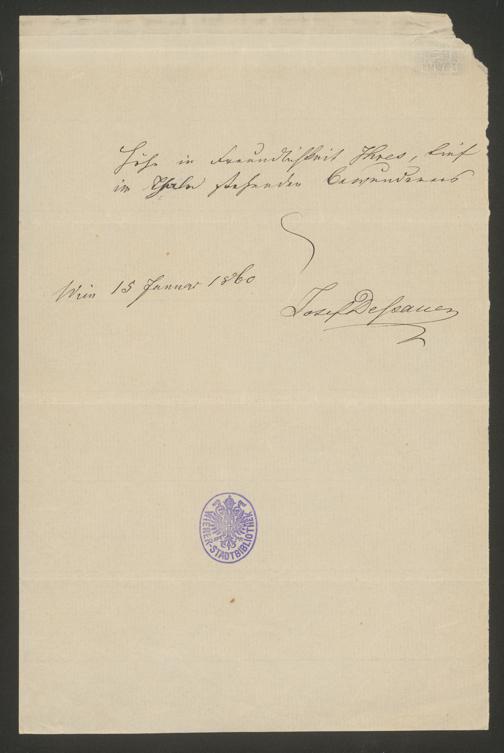 in Freundlichkeit Ihres, tief
im Thale stehenden Bewunderers
Wien 15 Januar 1860
Josef Dessauer
WIENER-STADTBIBLIOTHEK